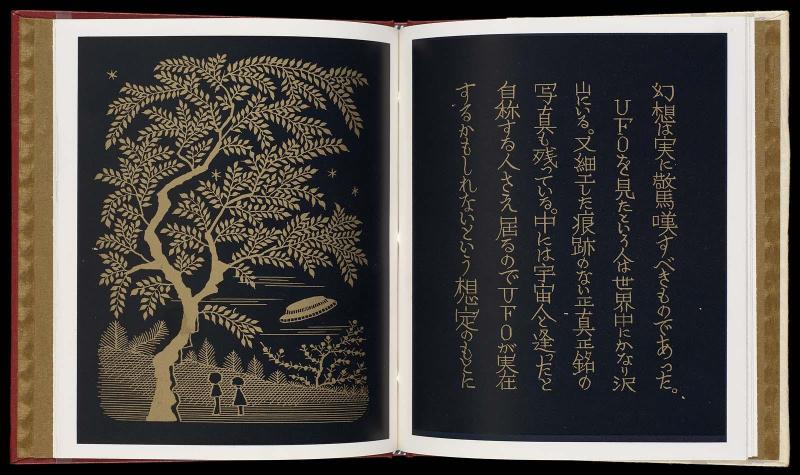 幻想は実に驚嘆すべきものであった。
UFOを見たという人は世界中にかなり沢
山にいる。又細工した痕跡のない正真正銘の
写真も残っている。中には宇宙人と逢ったと
自称する人さえ居るのでUFOが実在
するかもしれないという想定のもとに